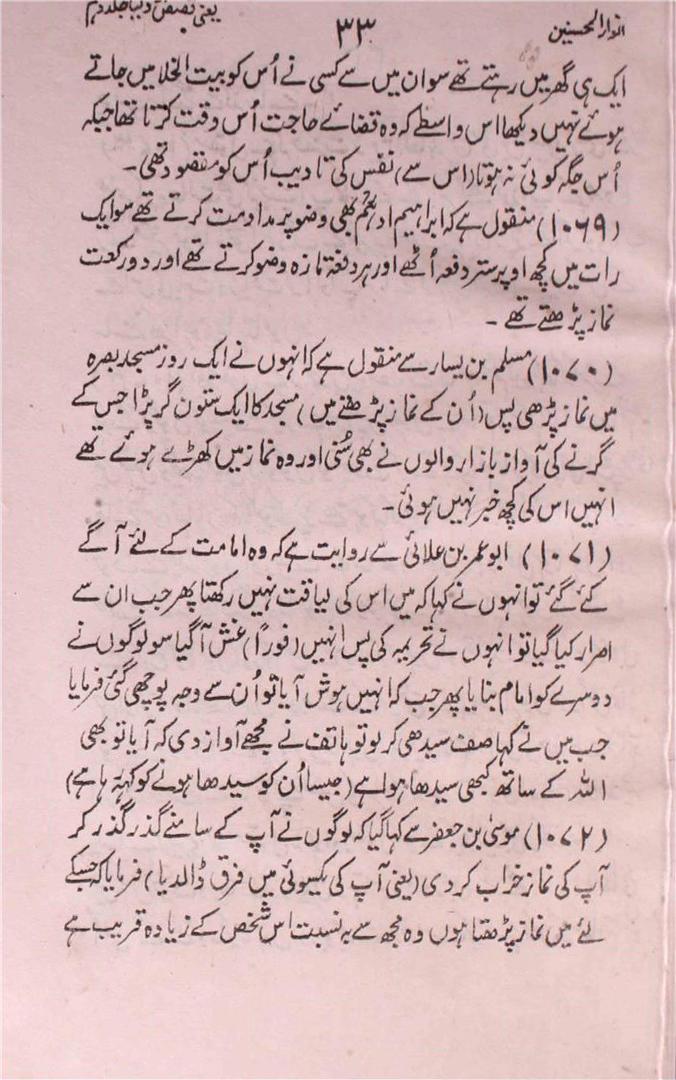 انوار المحسنین
۳۳
ایک ہی گھر میں رہتے تھے سو ان میں سے کسی نے اُس کو بیت الخلا میں جاتے
ہوئے نہیں دیکھا اس واسطے کہ وہ قضائے حاجت اُس وقت کرتا تھا جبکہ
اُس جگہ کوئی نہ ہوتا (اس سے) نفس کی تادیب اُس کو مقصود تھی۔
(۱۰۶۹) منقول ہے کہ ابراہیم ادہمؒ بھی وضو پر مداومت کرتے تھے سو ایک
رات میں کچھ اوپر ستر دفعہ اُٹھے اور ہر دفعہ تازہ وضو کرتے تھے اور دو رکعت
نماز پڑھتے تھے۔
(۱۰۷۰) مسلم بن یسار سے منقول ہے کہ انہوں نے ایک روز مسجد بصرہ
میں نماز پڑھی پس (اُن کے نماز پڑھتے میں) مسجد کا ایک ستون گر پڑا جس کے
گرنے کی آواز بازار والوں نے بھی سُنی اور وہ نماز میں کھڑے ہوئے تھے
انہیں اس کی کچھ خبر نہیں ہوئی۔
(۱۰۷۱) ابو عمر بن علائیؒ سے روایت ہے کہ وہ امامت کے لئے آگے
کئے گئے تو انہوں نے کہا کہ میں اس کی لیاقت نہیں رکھتا پھر جب ان سے
اصرار کیا گیا تو انہوں نے تحریمہ کی پس انہیں (فوراً) غش آگیا سو لوگوں نے
دوسرے کو امام بنایا پھر جب کہ انہیں ہوش آیا تو اُن سے وجہ پوچھی گئی فرمایا
جب میں نے کہا صف سیدھی کر لو تو ہاتف نے مجھے آواز دی کہ آیا تو بھی
اللہ کے ساتھ کبھی سیدھا ہوا ہے (جیسا اُن کو سیدھا ہونے کو کہتا ہے)
(۱۰۷۲) موسیٰ بن جعفر سے کہا گیا کہ لوگوں نے آپ کے سامنے گذر گذر کر
آپ کی نماز خراب کر دی (یعنی آپ کی یکسوئی میں فرق ڈالدیا) فرمایا کہ جسکے
لئے میں نماز پڑھتا ہوں وہ مجھ سے بہ نسبت اس شخص کے زیادہ قریب ہے